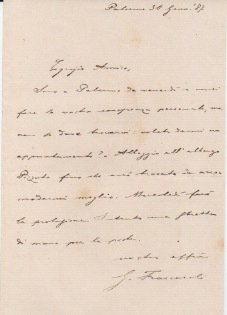 Palermo 30 Genn. '87
Egregio Amico,
Sono a Palermo da venerdì e vorrei
fare la vostra conoscenza personale, ma
non so dove trovarvi: volete darmi un
appuntamento? Alloggio all'albergo
fino che avrò trovato da
modarmi meglio. Mercoledì farò
la
di mano per la posta.
vostro affmo
G.